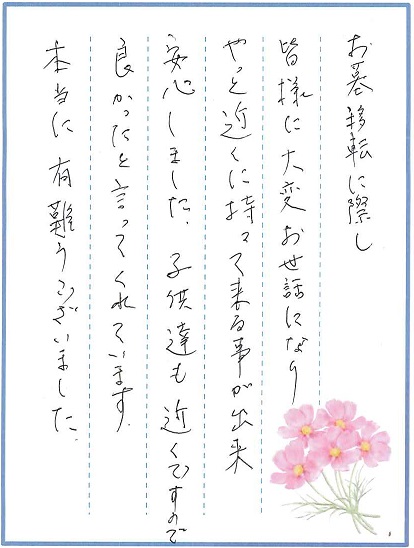 お墓移転に際し
皆様に大変お世話になり
やっと近くに持って来る事が出来
安心しました。子供達も近くですので
良かったと言ってくれています。
本当に有難うございました。